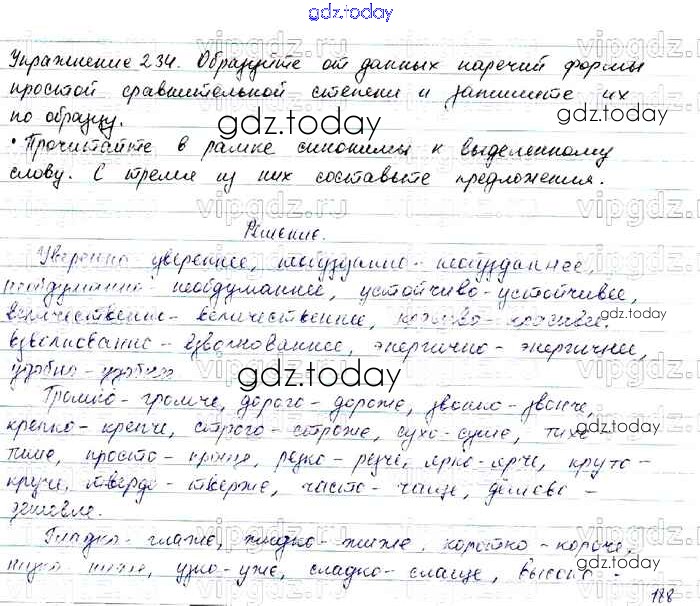 gdz.today
Упражнение 234. Образуйте от данных наречий формы
простой сравнительной степени и запишите их
по образцу.
gdz.today
• Прочитайте в рамке синонимы к выделенному
слову. С тремя из них составьте предложения.
Решение.
Уверенно увереннее, необузданно - необузданнее,
необдуманнее, устойчиво - устойчивее,
величественно - величественнее, красиво - красивее.
gdz.today
взволнованно - взволнованнее, энергично - энергичнее,
удобно - удобнее
gdz.today
Громко - громче, дорого - дороже, звонко - звонче,
крепко - крепче, строго - строже, сухо - суше, тихо
тише, просто - проще, резко - резче, ярко - ярче, круто -
gdz.today
круче, твердо - тверже, часто - чаще, дёшево -
дешевле.
gdz.today
Гладко - глаже, жидко - жиже, коротко - короче,
низко ниже, узко - уже, сладко - слаще, высоко -
188
vipgdz.ru